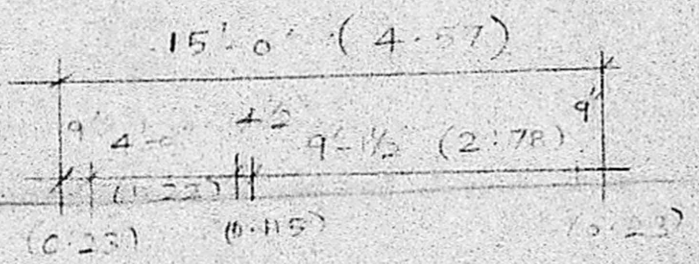 15'-0" (4.57)
9" 4'-0" 4½" 9'-1½" (2.78) 9"
(1.22)
(0.23) (0.115) (0.23)